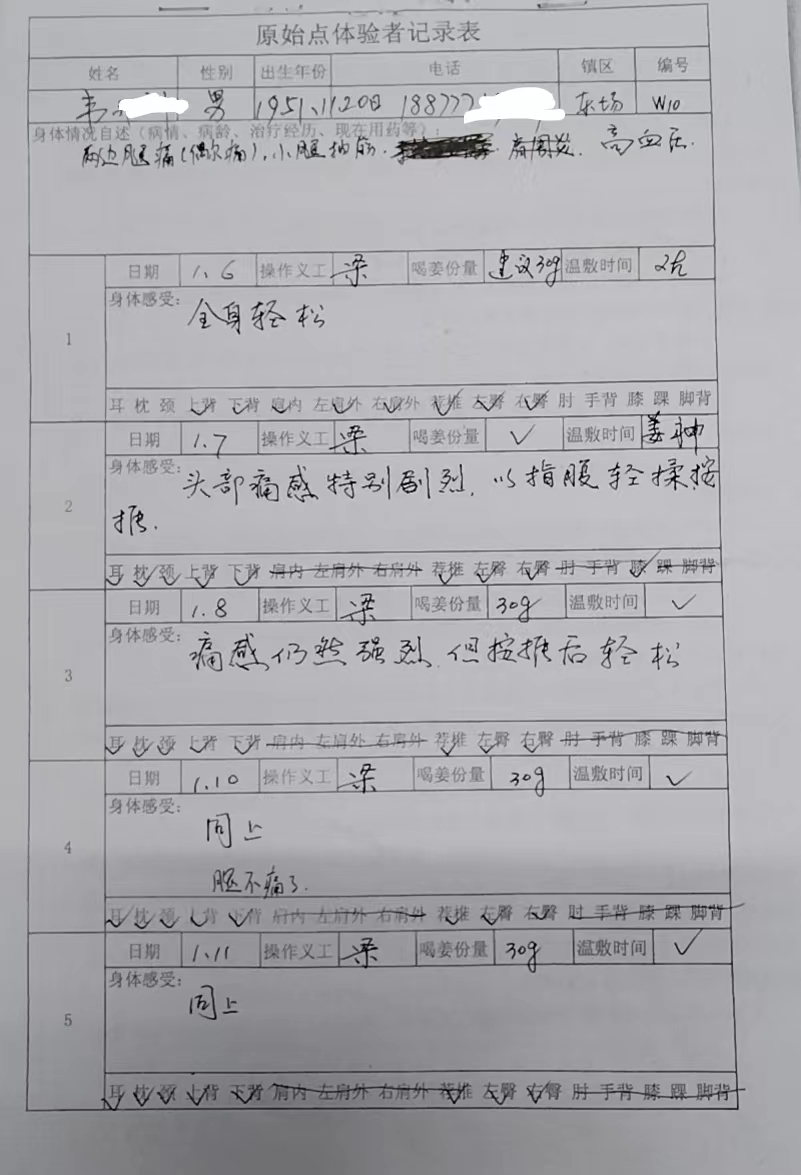 原始点体验者记录表
姓名 性别 出生年份 电话 镇区 编号
韦 男 1951.11.20日 188777 东场 W10
身体情况自述（病情、病龄、治疗经历、现在用药等）：
两边腿痛(偶尔痛)，小腿抽筋. 肩周炎. 高血压.
1
日期 1.6 操作义工 梁 喝姜份量 建议30g 温敷时间 2h
身体感受：
全身轻松
耳 枕 颈 上背 下背 肩内 左肩外 右肩外 荐椎 左臀 右臀 肘 手背 膝 踝 脚背
2
日期 1.7 操作义工 梁 喝姜份量 ✓ 温敷时间
身体感受：
头部痛感特别剧烈，以指腹轻揉按
推.
耳 枕 颈 上背 下背 肩内 左肩外 右肩外 荐椎 左臀 右臀 肘 手背 膝 踝 脚背
3
日期 1.8 操作义工 梁 喝姜份量 30g 温敷时间 ✓
身体感受：
痛感仍然强烈，但按推后轻松
耳 枕 颈 上背 下背 肩内 左肩外 右肩外 荐椎 左臀 右臀 肘 手背 膝 踝 脚背
4
日期 1.10 操作义工 梁 喝姜份量 30g 温敷时间 ✓
身体感受：
同上
腿不痛了.
耳 枕 颈 上背 下背 肩内 左肩外 右肩外 荐椎 左臀 右臀 肘 手背 膝 踝 脚背
5
日期 1.11 操作义工 梁 喝姜份量 30g 温敷时间 ✓
身体感受：
同上
耳 枕 颈 上背 下背 肩内 左肩外 右肩外 荐椎 左臀 右臀 肘 手背 膝 踝 脚背